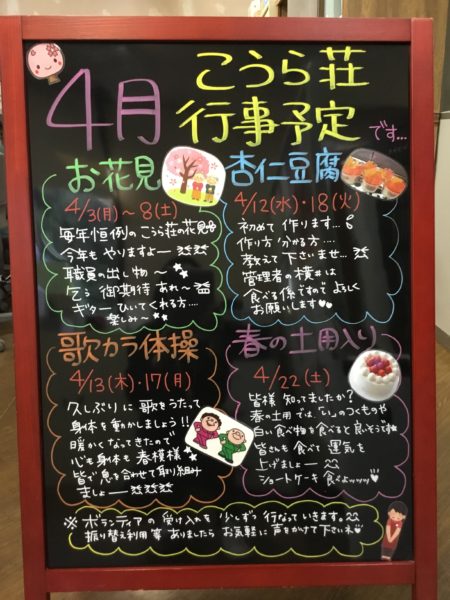 4月
こうら荘
行事予定
です…
お花見
4/3(月)～8(土)
毎年恒例のこうら荘の花見
今年もやりますよー
職員の出し物～
乞う御期待あれ～
ギターひいてくれる方‥‥
楽しみ～
杏仁豆腐
4/12(水)・18(火)
初めて作ります…
作り方分かる方‥‥
教えて下さいませ…
管理者の横#は
食べる係ですのでよろしく
お願いします♥
歌カラ体操
4/13(木)・17(月)
久しぶりに歌をうたって
身体を動かしましょう!!
暖かくなってきたので
心も身体も春模様
皆で息を合わせて取り組み
ましょー
春の土用入り
4/22(土)
皆様知ってましたか?
春の土用では「い」のつくものや
白い食べ物を食べると良いそうです
皆さんも食べて運気を
上げましょー
ショートケーキ食べよッッッ
※ボランティアの受け入れを少しずつ行なっていきます。
振り替え利用等ありましたらお気軽に声をかけて下さいネ